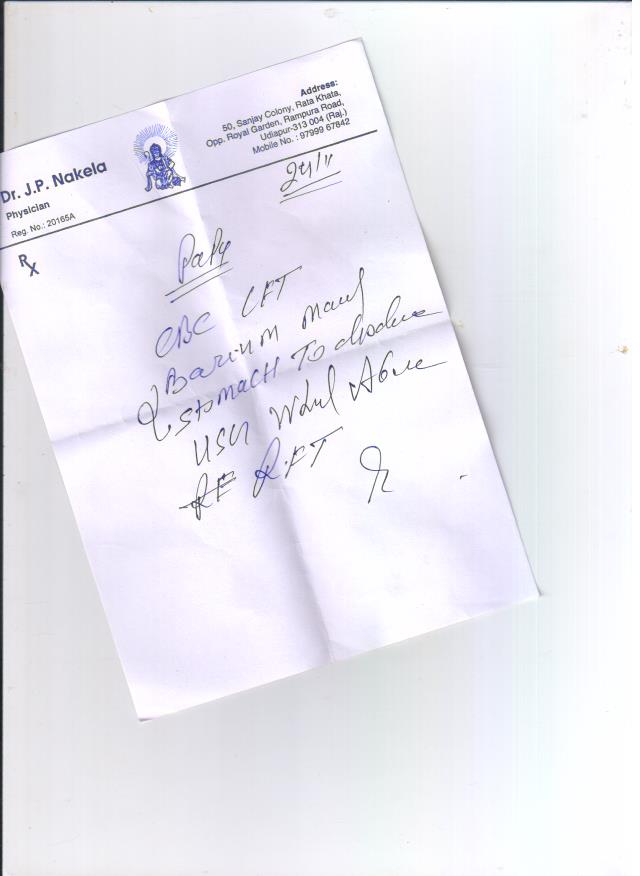 Dr. J.P. Nakela
Physician
Reg. No.: 20165A
Address:
50, Sanjay Colony, Rata Khata,
Opp. Royal Garden, Rampura Road,
Udiapur-313 004 (Raj.)
Mobile No. : 97999 67842
24/11
Rx
CBC LFT
Barium
Stomach To
USG
RFT